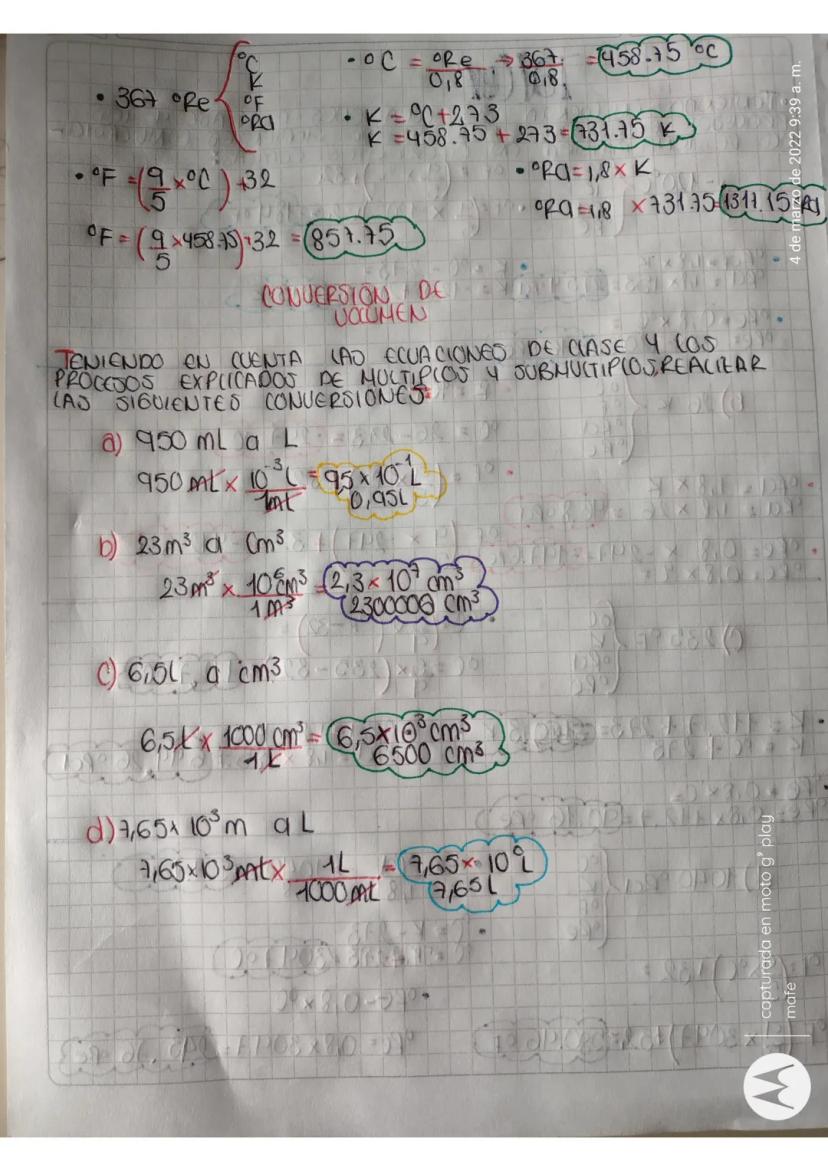 • 367 °Re { °C K °F °Ra
• °C = °Re/0,8 → 367/0,8 = 458.75 °C
• K = °C + 273
K = 458.75 + 273 = 731.75 K
• °F = (9/5 × °C) + 32
°F = (9/5 × 458.75) + 32 = 857.75
• °Ra = 1,8 × K
°Ra = 1,8 × 731.75 = 1317.15 Ra
CONVERSIÓN DE
VOLUMEN
TENIENDO EN CUENTA LAS ECUACIONES DE CLASE Y LOS
PROCESOS EXPLICADOS DE MULTIPLOS Y SUBMULTIPLOS, REALIZAR
LAS SIGUIENTES CONVERSIONES:
a) 950 mL a L
950 mL × 10⁻³L/1mL = 95 × 10⁻¹ L
0,95L
b) 23m³ a cm³
23m³ × 10⁶cm³/1m³ = 2,3 × 10⁷ cm³
2300000 cm³
c) 6,5L a cm³
6,5L × 1000 cm³/1L = 6,5×10³ cm³
6500 cm³
d) 7,65× 10³m a L
7,65×10³ mL × 1L/1000mL = 7,65× 10° L
7,65L
4 de marzo de 2022 9:39 a. m.
capturada en moto g⁹ play
mafe